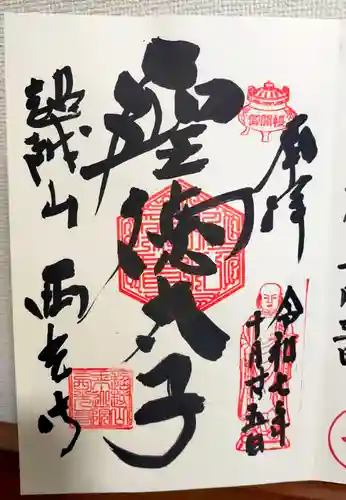 奉拝
令和七年
十月廿五日
聖徳太子
超越山
西光寺